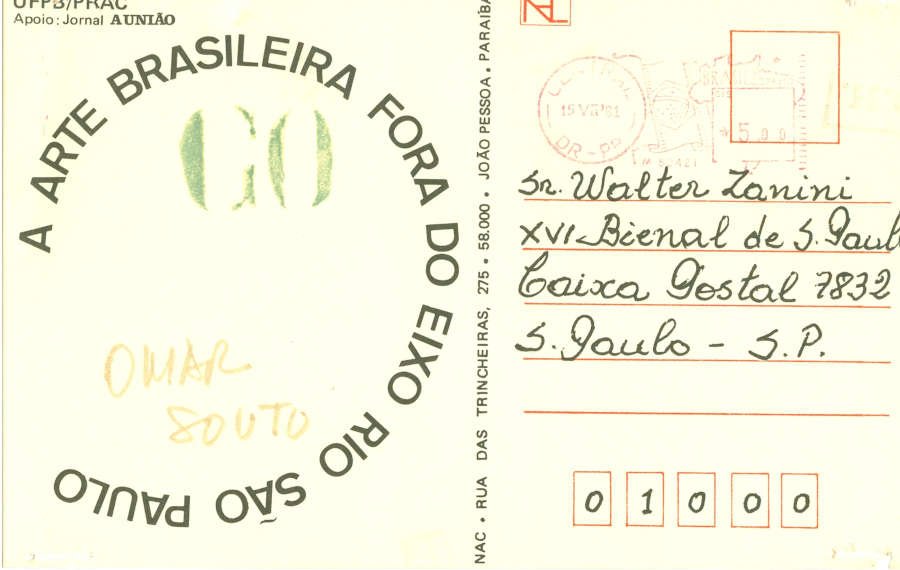 UFPB/PRAC
Apoio: Jornal A UNIÃO
A ARTE BRASILEIRA FORA DO EIXO RIO SÃO PAULO
GO
OMAR
SOUTO
NAC • RUA DAS TRINCHEIRAS, 275 • 58.000 • JOÃO PESSOA • PARAIBA
CENTRAL
15 VII 81
DR-PR
BRASIL
5 00
Sr. Walter Zanini
XVI Bienal de S. Paulo
Caixa Postal 7832
S. Paulo - S.P.
0 1 0 0 0